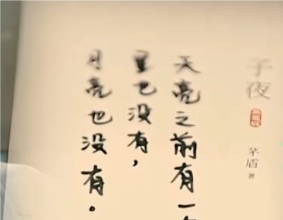 子夜
茅盾 著
天亮之前有一
里也没有,
月亮也没有。